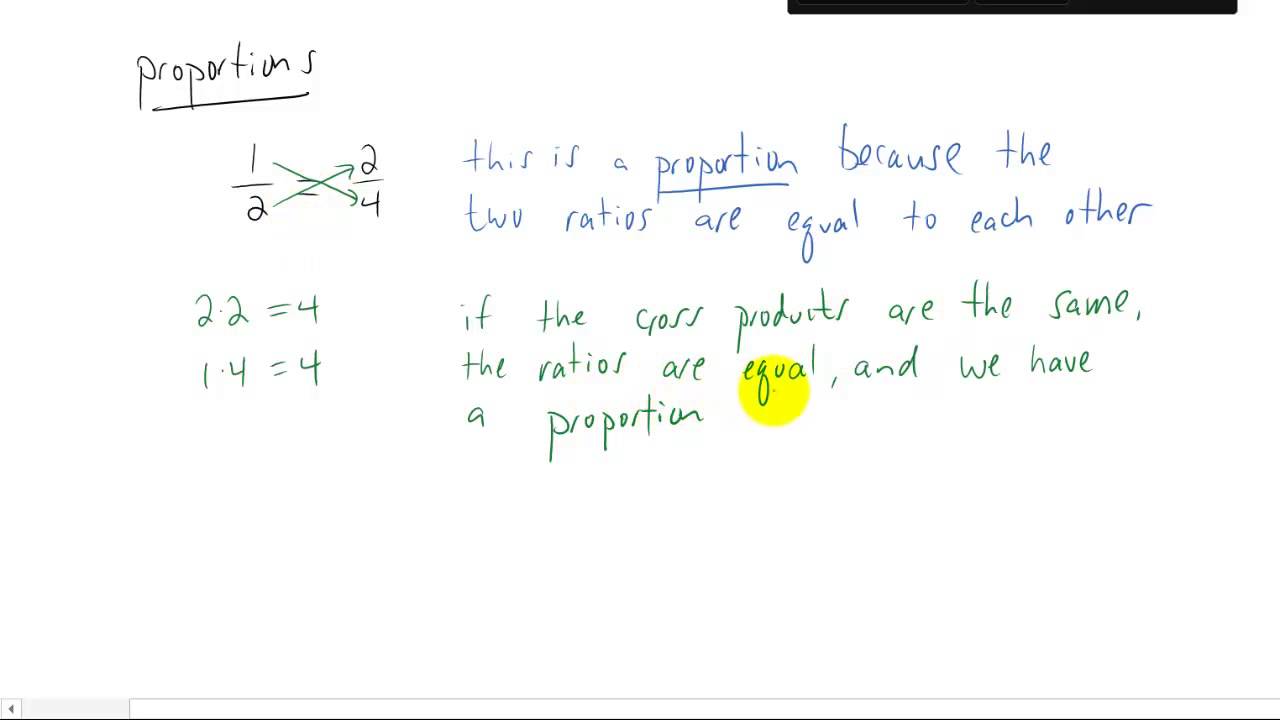 proportions
1/2 = 2/4
this is a proportion because the
two ratios are equal to each other
2·2 = 4
1·4 = 4
if the cross products are the same,
the ratios are equal, and we have
a proportion